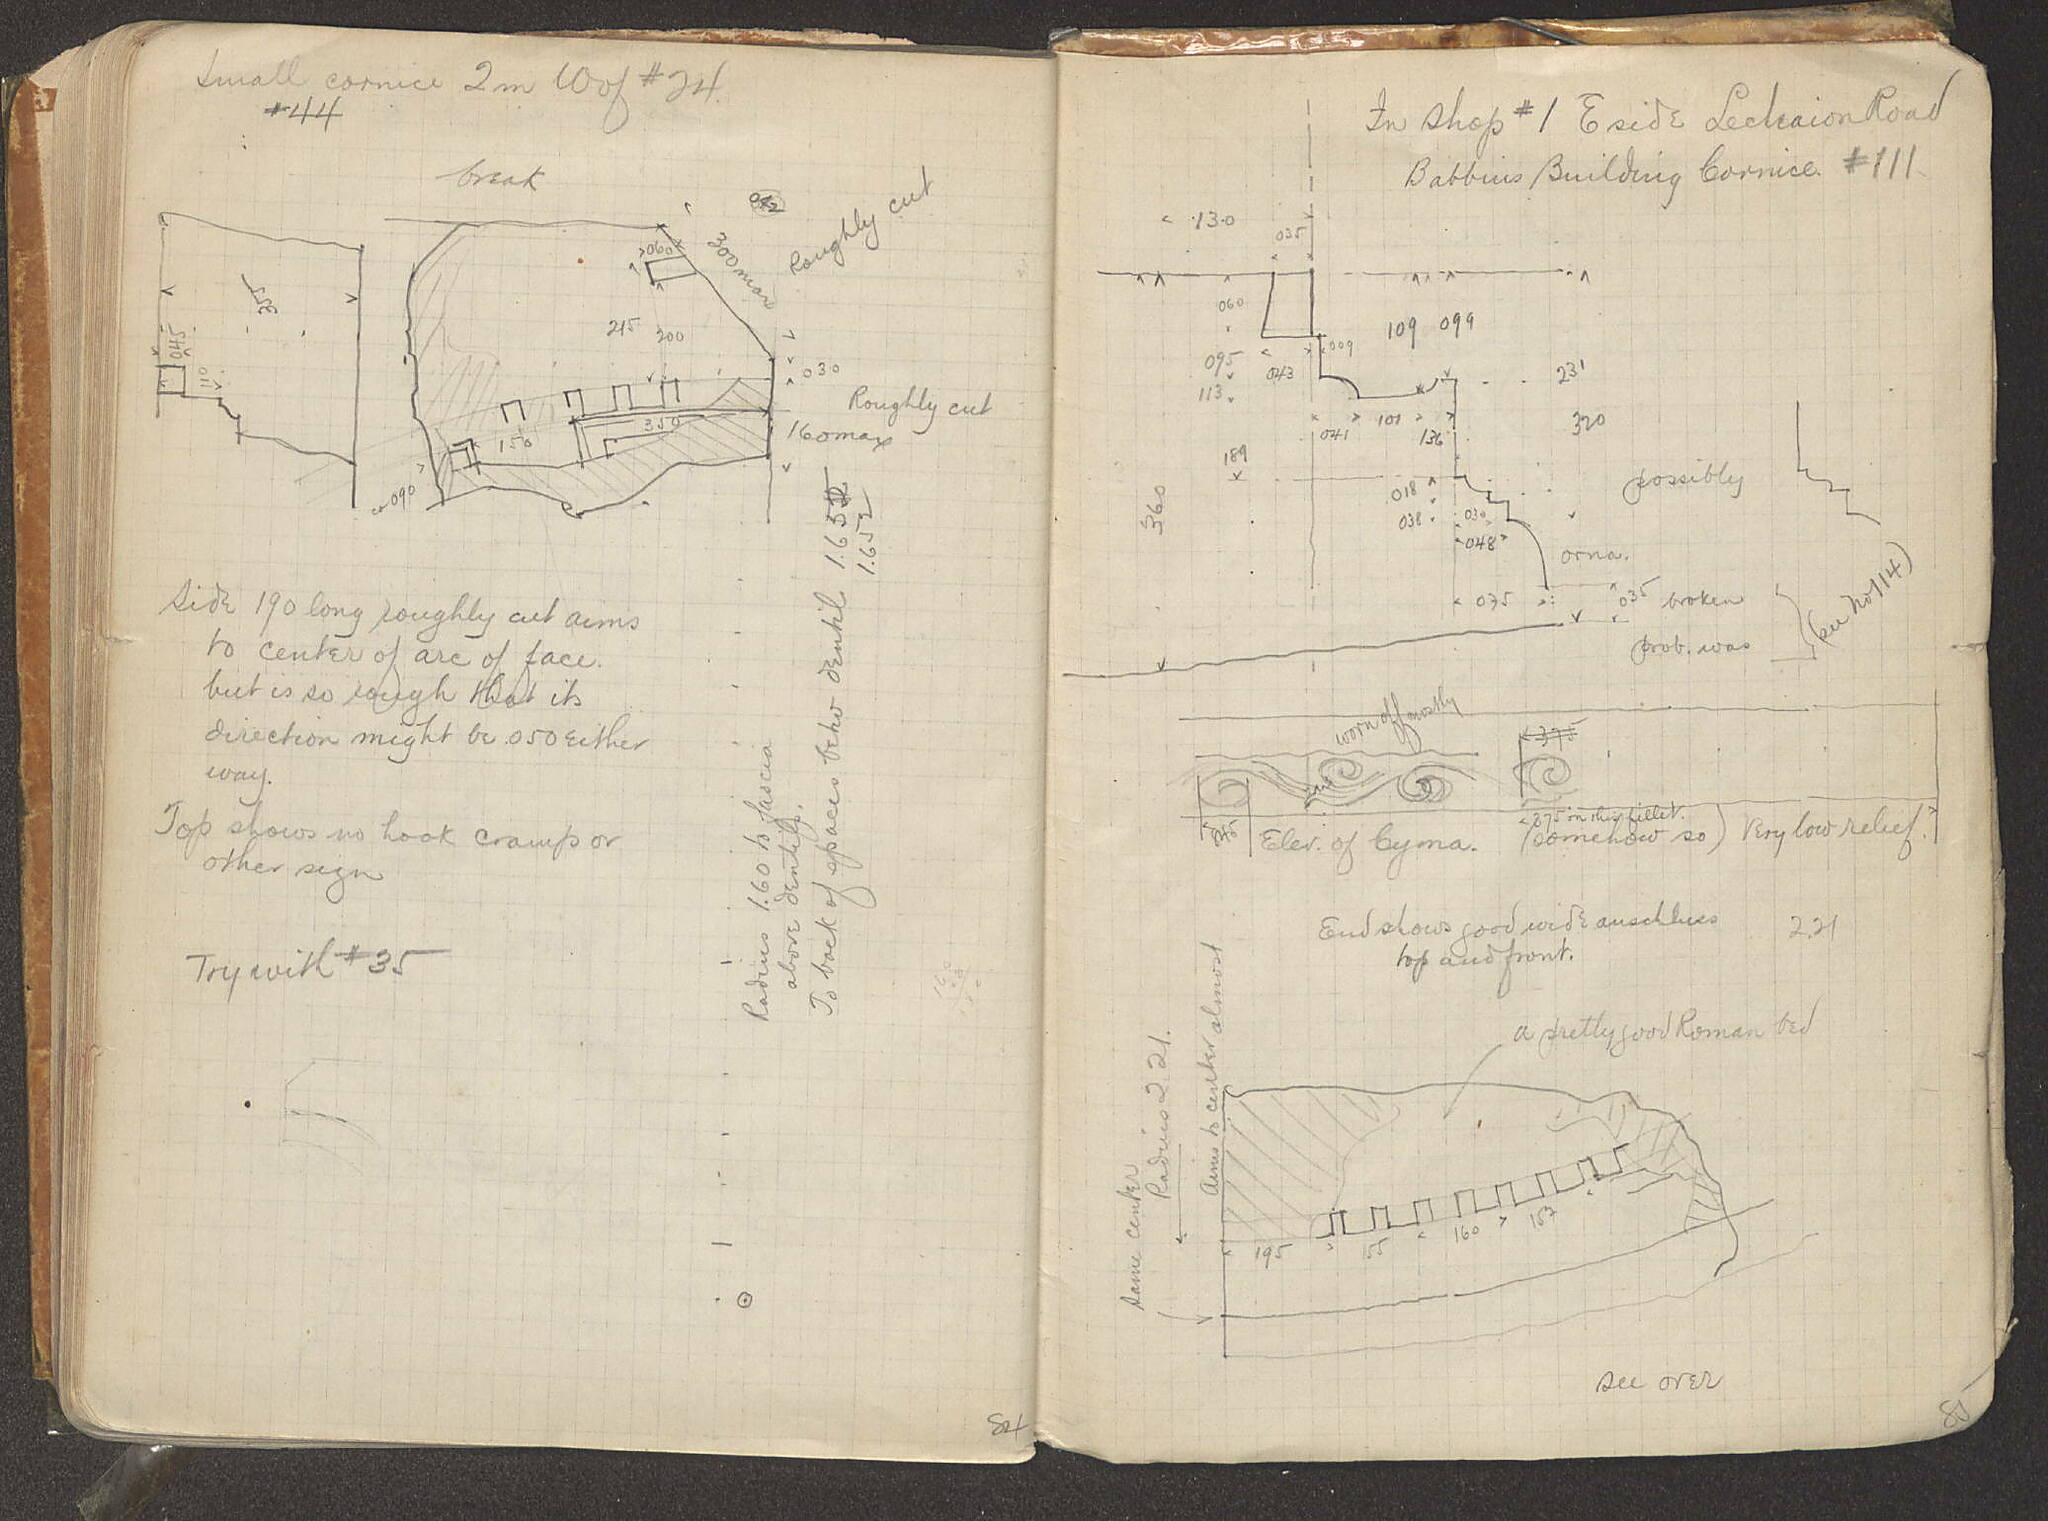 Small cornice 2m W of #24.
#44
break
Roughly cut
300 max
060
355
045
110
215
200
030
Roughly cut
160 max
150
350
ca 090
Side 190 long roughly cut aims
to center of arc of face.
but is so rough that its
direction might be .050 either
way.
Top shows no hook cramp or
other sign
Try with #35
Radius 1.60 to fascia
above dentils.
To back of spaces betw dentil
1.652
84
In Shop #1 E side Lechaion Road
Babbius Building Cornice. #111.
.130
035
060
109 099
009
095
043
113
231
041
101
136
320
189
360
018
038
030
048
possibly
orna.
075
035 broken
prob. was
(see No 114)
worn off mostly
375
Elev. of Cyma.
.375 on this fillet.
(somehow so)
Very low relief.
End shows good wide anschluss
top and front.
2.21
a pretty good Roman bed
Same center
Radius 2.21.
Aims to center almost
195
155
160
157
see over
85